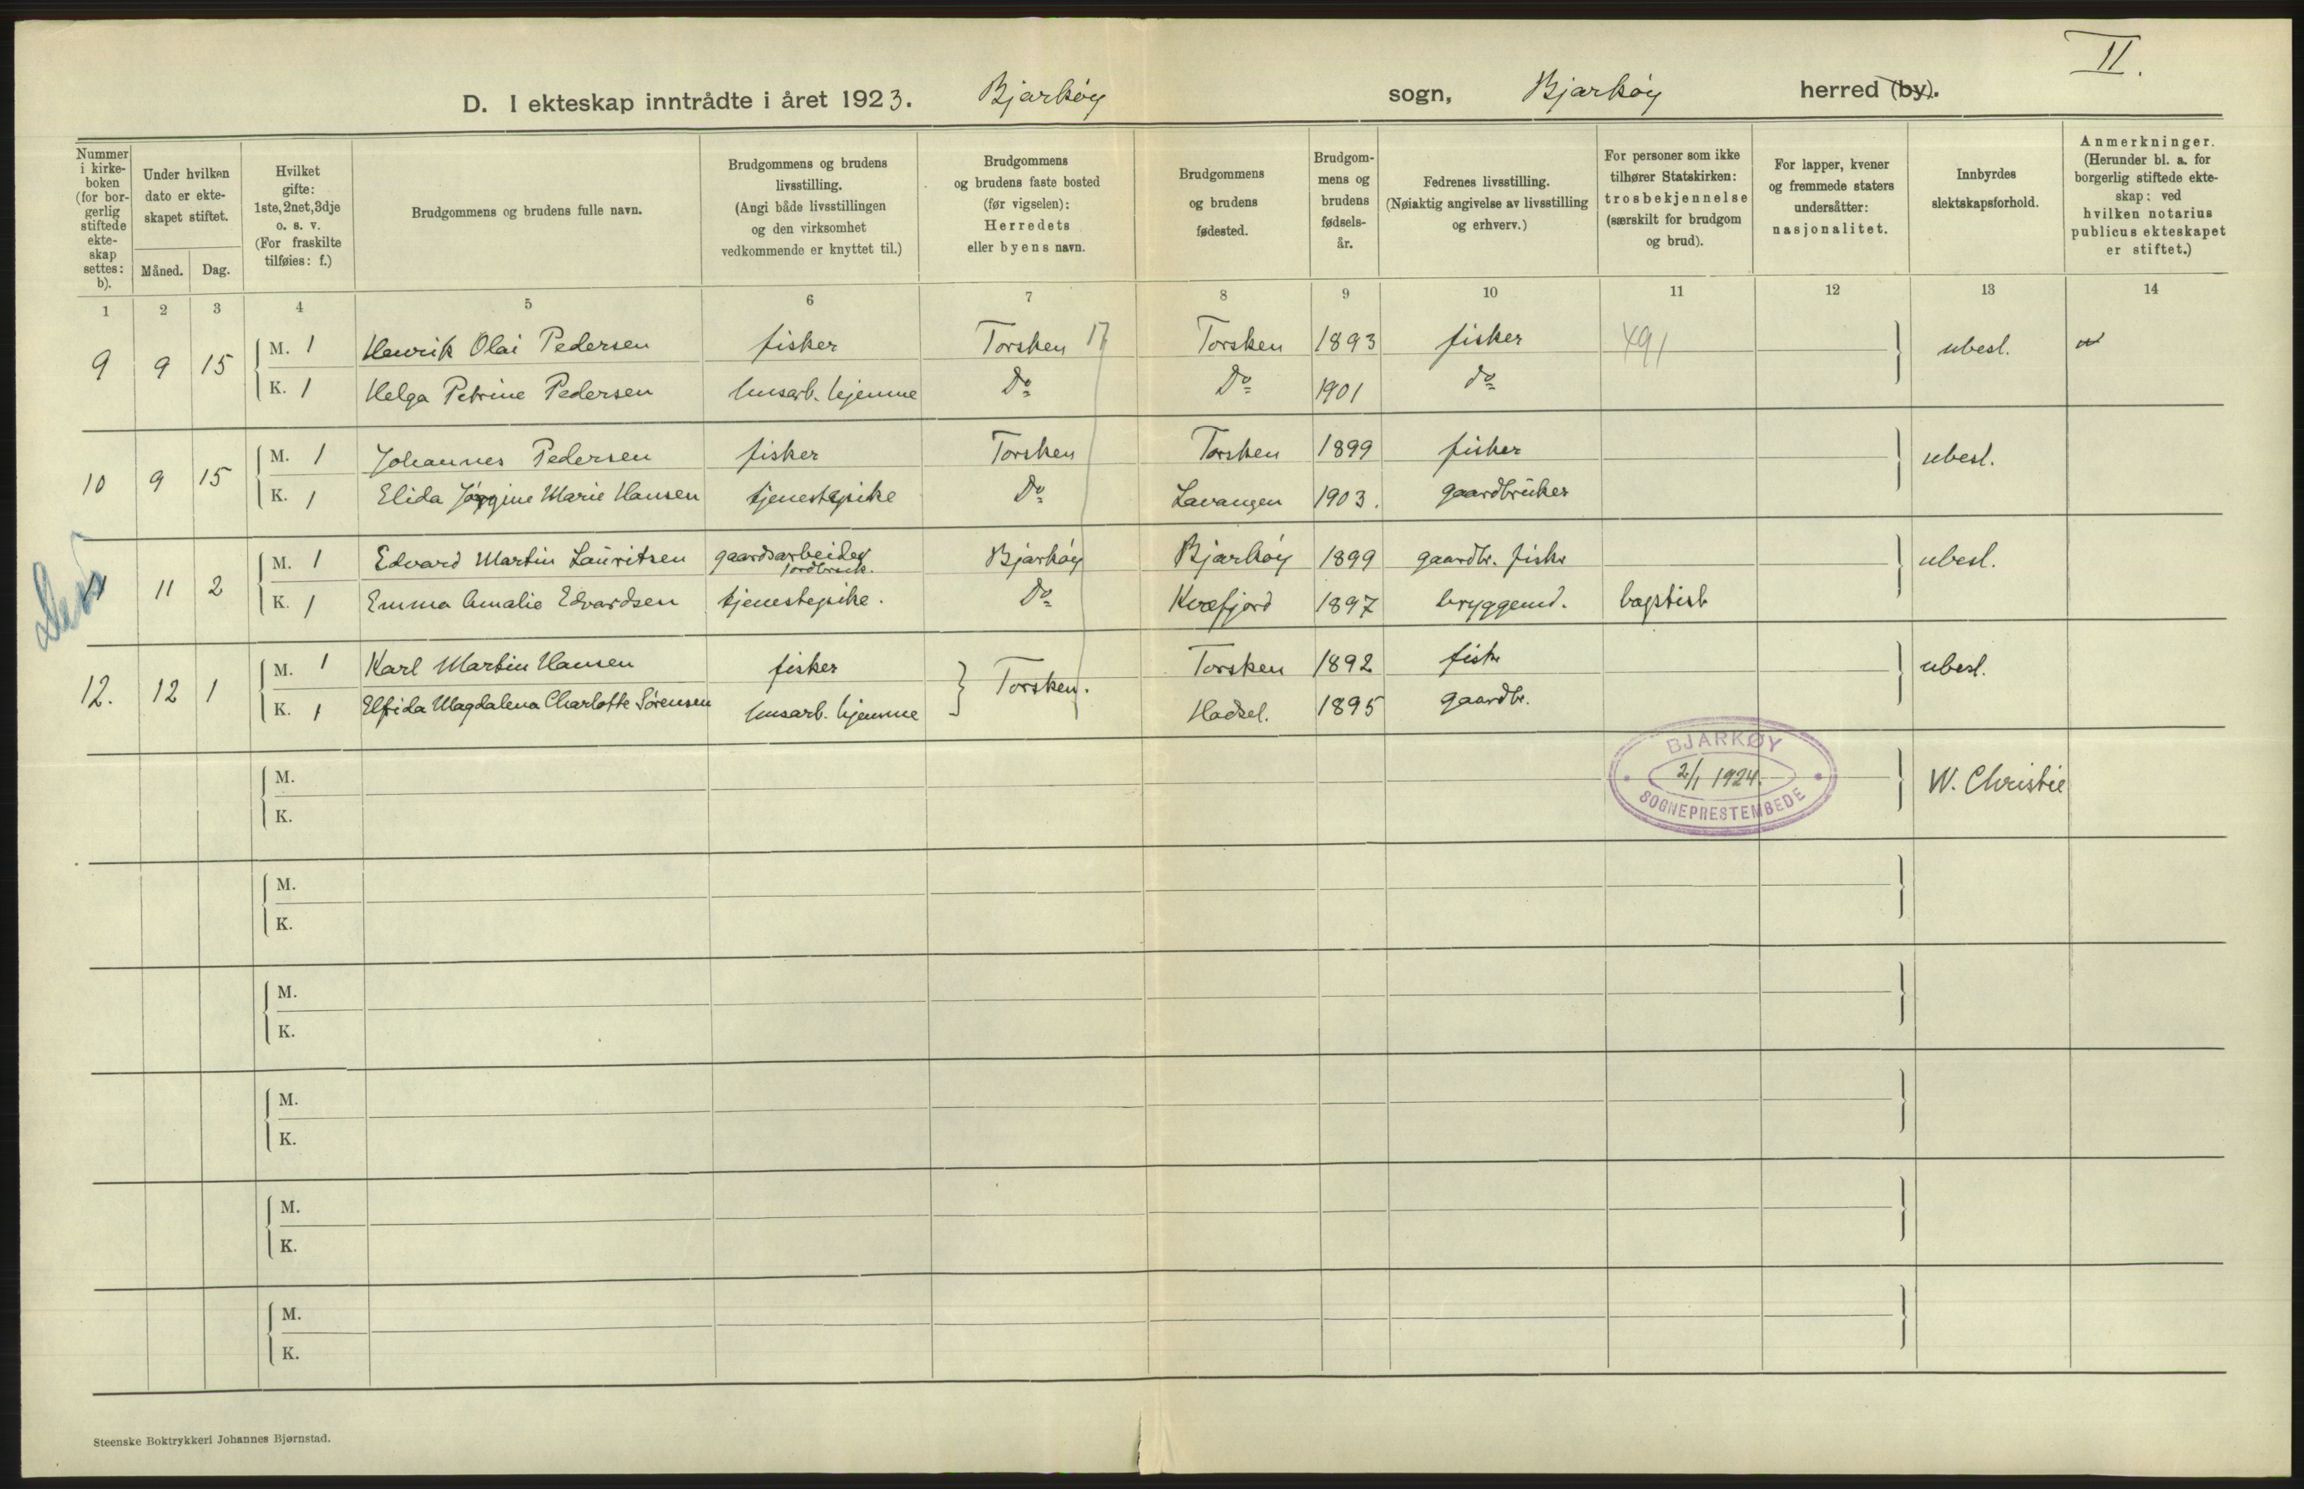 II.
D. I ekteskap inntrådte i året 1923. Bjarkøy sogn, Bjarkøy herred (by).
Nummer i kirke-boken (for bor-gerlig stiftede ekte-skap settes: b).
Under hvilken dato er ekte-skapet stiftet.
Måned. Dag.
Hvilket gifte: 1ste, 2net, 3dje o. s. v. (For fraskilte tilføies: f.)
Brudgommens og brudens fulle navn.
Brudgommens og brudens livsstilling. (Angi både livsstillingen og den virksomhet vedkommende er knyttet til.)
Brudgommens og brudens faste bosted (før vigselen): Herredets eller byens navn.
Brudgommens og brudens fødested.
Brudgom-mens og brudens fødsels-år.
Fedrenes livsstilling. (Nøiaktig angivelse av livsstilling og erhverv.)
For personer som ikke tilhører Statskirken: trosbekjennelse (særskilt for brudgom og brud).
For lapper, kvener og fremmede staters undersåtter: nasjonalitet.
Innbyrdes slektskapsforhold.
Anmerkninger. (Herunder bl. a. for borgerlig stiftede ekte-skap: ved hvilken notarius publicus ekteskapet er stiftet.)
1 2 3 4 5 6 7 8 9 10 11 12 13 14
9 9 15 M. 1 Henrik Olai Pedersen fisker Torsken 17 Torsken 1893 fisker 491 ubesl.
K. 1 Helga Petrine Pedersen husarb. hjemme Do Do 1901 do
10 9 15 M. 1 Johannes Pedersen fisker Torsken Torsken 1899 fisker ubesl.
K. 1 Elida Jørgine Marie Hansen tjenestepike Do Lavangen 1903. gaardbruker
11 2 M. 1 Edvard Martin Lauritsen gaardsarbeider jordbruk. Bjarkøy Bjarkøy 1899 gaardbr. fisker ubesl.
K. 1 Emma Amalie Edvardsen tjenestepike. Do Kvæfjord 1897 bryggemd. baptist
12. 12 1 M. 1 Karl Martin Hansen fisker Torsken. Torsken 1892 fisker ubesl.
K. 1 Elfida Magdalena Charlotte Sørensen husarb. hjemme Hadsel. 1895 gaardbr.
BJARKØY
2/1 1924.
SOGNEPRESTEMBEDE
M. W. Christie
K.
M.
K.
M.
K.
M.
K.
M.
K.
M.
K.
Steenske Boktrykkeri Johannes Bjørnstad.